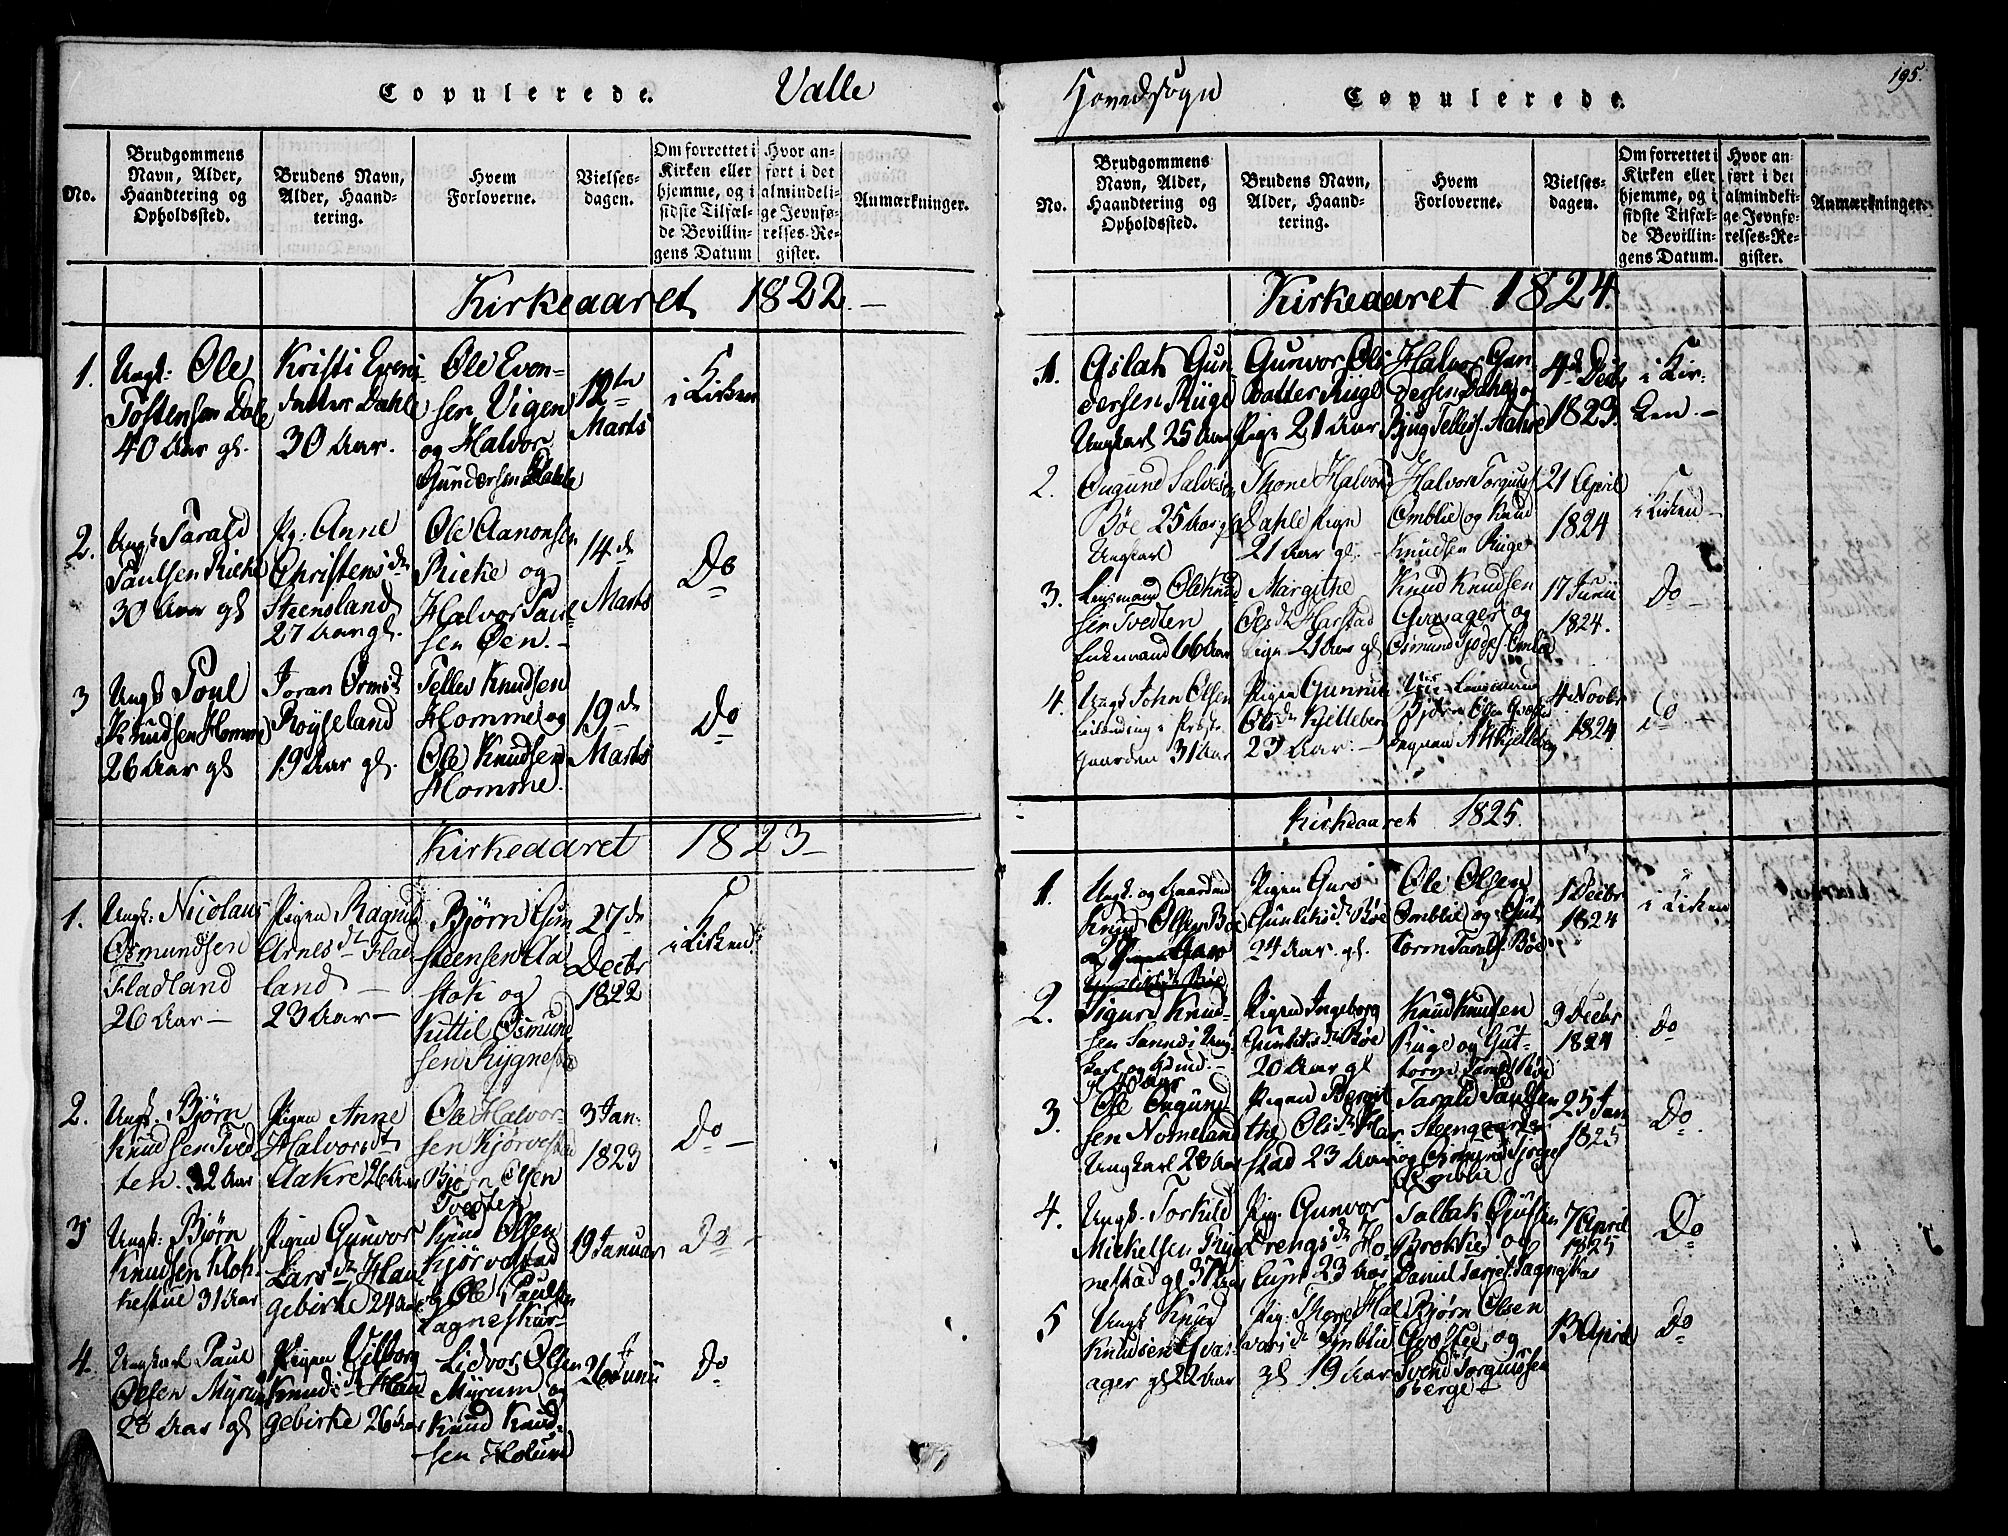 Copulerede.
Valle
No.
Brudgommens
Navn, Alder,
Haandtering og
Opholdssted.
Brudens Navn,
Alder, Haand-
tering.
Hvem
Forloverne.
Vielses-
dagen.
Om forrettet i
Kirken eller
hjemme, og i
sidste Tilfæl-
de Bevillin-
gens Datum
Hvor an-
ført i det
almindeli-
ge Jevnfø-
relses-Re-
gister.
Anmærkninger.
Kirkeaaret 1822.
1.
Ungk: Ole
Tostensen Dale
40 Aar gl.
Kristi Evens
datter Dahle
30 Aar.
Ole Even-
sen Vigen
og Halvor
Gundersen Dahle
12te
Marts
i Kirken
2.
Ungk. Tarald
Paulsen Rieke
30 Aar gl
Pg: Anne
Christensdr
Steensland
27 Aar gl.
Ole Aanonsen
Rieke og
Halvor Paul-
sen Øen.-
14de
Marts
Do
3
Ungk Poul
Knudsen Homme
26 Aar gl
Joran Ormsdr
Røyseland
19 Aar gl.
Tellev Knudsen
Homme og
Ole Knudsen
Homme.
19de
Marts
Do
Kirkeaaret 1823
1.
Ungk: Nicolaus
Osmundsen
Fladland
26 Aar-
Pigen Ragnild
Arnesdr Flad
land -
23 Aar-
Bjørn Gun
steensen Aa
stok og
Kittil Osmund
sen Rygnestad
27de
Decbr
1822
i Kirken
2.
Ungk. Bjørn
Knudsen Tved
ten. 32 Aar
Pigen Anne
Halvorsdt
Aakre 26 Aar
Ole Halvor-
sen Kjørvestad
Bjørn Olsen
Tvedten
3 Jan:
1823
Do -
3
Ungk: Bjørn
Knudsen Klok-
kestue 31 Aar
Pigen Gunvor
Larsdr Hau
gebirke 24 Aar
Knud Olsen
Kjørvestad
og Ole Paulsen
Sagneskar-
19 Januar
Do -
4.
Ungkarl Paul
Olsen Myrum
28 Aar gl
Pigen Vilborg
Knudsdr Hau
gebirke 26 Aar
Lidvor Olsen
Myrum og
Knud Knud-
sen Holum
26 Junii
Do
Hovedsogn
Copulerede.
195.
No.
Brudgommens
Navn, Alder,
Haandtering og
Opholdssted.
Brudens Navn,
Alder, Haand-
tering.
Hvem
Forloverne.
Vielses-
dagen.
Om forrettet i
Kirken eller
hjemme, og i
sidste Tilfæl-
de Bevillin-
gens Datum.
Hvor an-
ført i det
almindeli-
ge Jevnfø-
relses-Re-
gister.
Anmærkninger.
Kirkeaaret 1824.
1.
Aslak Gun
dersen Rüge
Ungkarl 25 Aar
Gunvor Ols
Datter Rüge
Pige 21 Aar
Halvor Gun
dersen Dahle og
Bjug Tellefs. Aakre
4de Decbr
1823.
i Kir-
ken -
2.
Ougund Salves
Bøe 25 Aar gl
Ungkarl
Thone Halvorsd
Dahle Pige
21 Aar gl.
Halvor Torgiuss
Omblie og Knud
Knudsen Ruge
21 April
1824
i Kirken -
3.
Lensmand Ole Knud
sen Tvedten
Enkemand 66 Aar
Margithe
Olsdr Harstad
Pige 21 Aar gl
Knud Knudsen
Qvasager og
Osmund Omblie
17 Junii
1824.
Do -
4.
Ungk John Olsen
i Præste
Gaarden 31 Aar
Pigen Gunnild
Olsdr Kjelleberg
23 Aar. -
Lensmand
Bjørn Olsen
Kjelleberg
4 Novbr
1824.
Do -
Kirkeaaret 1825.
1.
Ungk. og Gaardmd
Knud Olsen Bøe
Pigen Guro
Gunleksdr Bøe
24 Aar. gl.
Ole Olsen
Omblie og Gut
torm Taralds. Bøe
1 Decbr
1824
i Kirken
2.
Sigurd Knud-
sen Ung-
karl og Grmd. -
gl 40 Aar
Pigen Ingeborg
Gunleksdr Bøe
20 Aar gl
Knud Knudsen
Rüge og Gut-
torm Taralds Bøe
3 Decbr
1824
Do
3.
Ole Ougund
sen Nomeland
Ungkarl 28 Aar
Pigen Bergit
the Olsdr Har
stad 23 Aar
Tarald Paulsen
Steengaarden
og Osmund
Omblie
25 Jan
1825
Do.
4.
Ungk. Torkild
Mickelsen Ryg
nestad gl 37 Aar
Pig. Gunvor
Drengsdr Ho
23 Aar
Tallak Gjufsen
Brokke og
Daniel Tarjes. Sagneskar
7 April
1825
Do
5
Ungk Knud
Knudsen Qvas-
ager gl 22 Aar
Pig. Thore Hal
vorsdr Omblie
gl 19 Aar
Bjørn Olsen
og
Svend Torgiussen
Berge -
13 April
Do